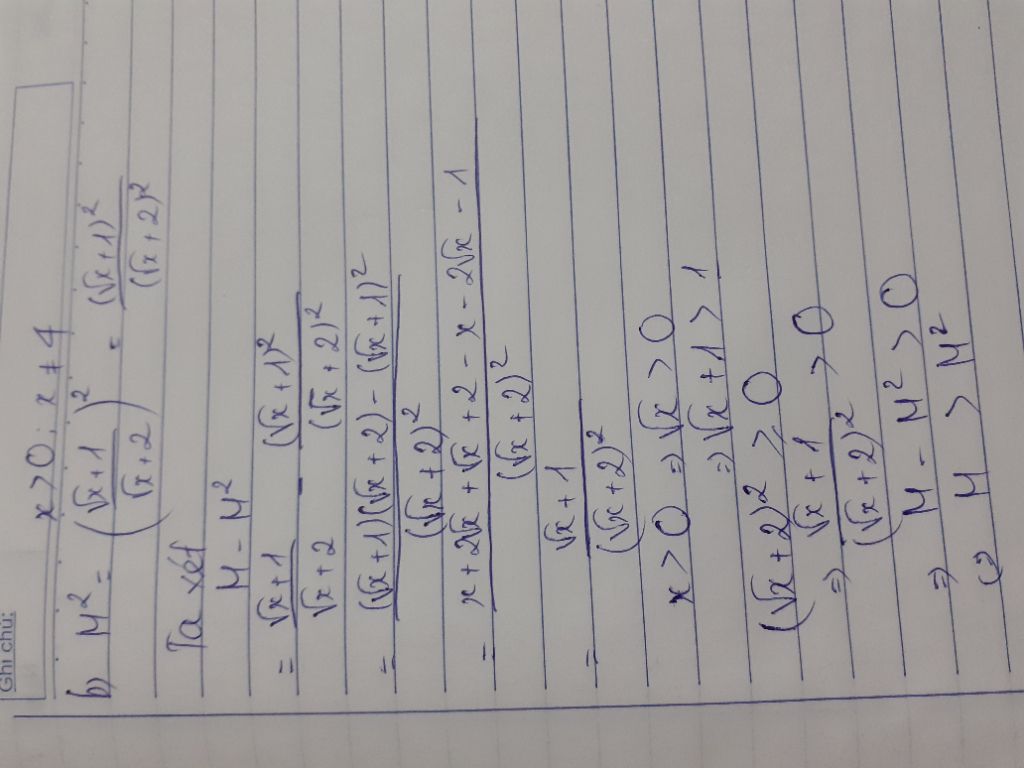 Ghi chú:
x > 0 ; x ≠ 4
b) M² = (√x + 1 / √x + 2)² = (√x + 1)² / (√x + 2)²
Ta xét
M - M²
= √x + 1 / √x + 2 - (√x + 1)² / (√x + 2)²
= (√x + 1)(√x + 2) - (√x + 1)² / (√x + 2)²
= x + 2√x + √x + 2 - x - 2√x - 1 / (√x + 2)²
= √x + 1 / (√x + 2)²
x > 0 => √x > 0
=> √x + 1 > 1
(√x + 2)² ≥ 0
=> √x + 1 / (√x + 2)² > 0
=> M - M² > 0
(=) M > M²